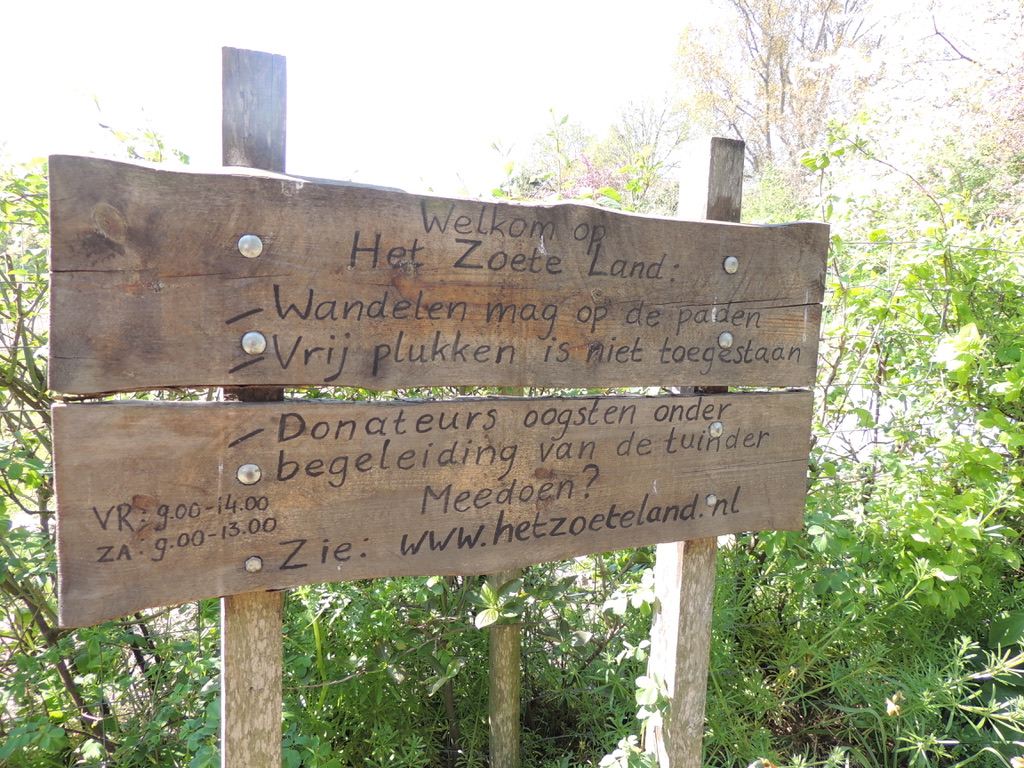 Welkom op
Het Zoete Land:
- Wandelen mag op de paden
- Vrij plukken is niet toegestaan
- Donateurs oogsten onder
begeleiding van de tuinder
Meedoen?
VR: 9.00-14.00
ZA: 9.00-13.00
Zie: www.hetzoeteland.nl